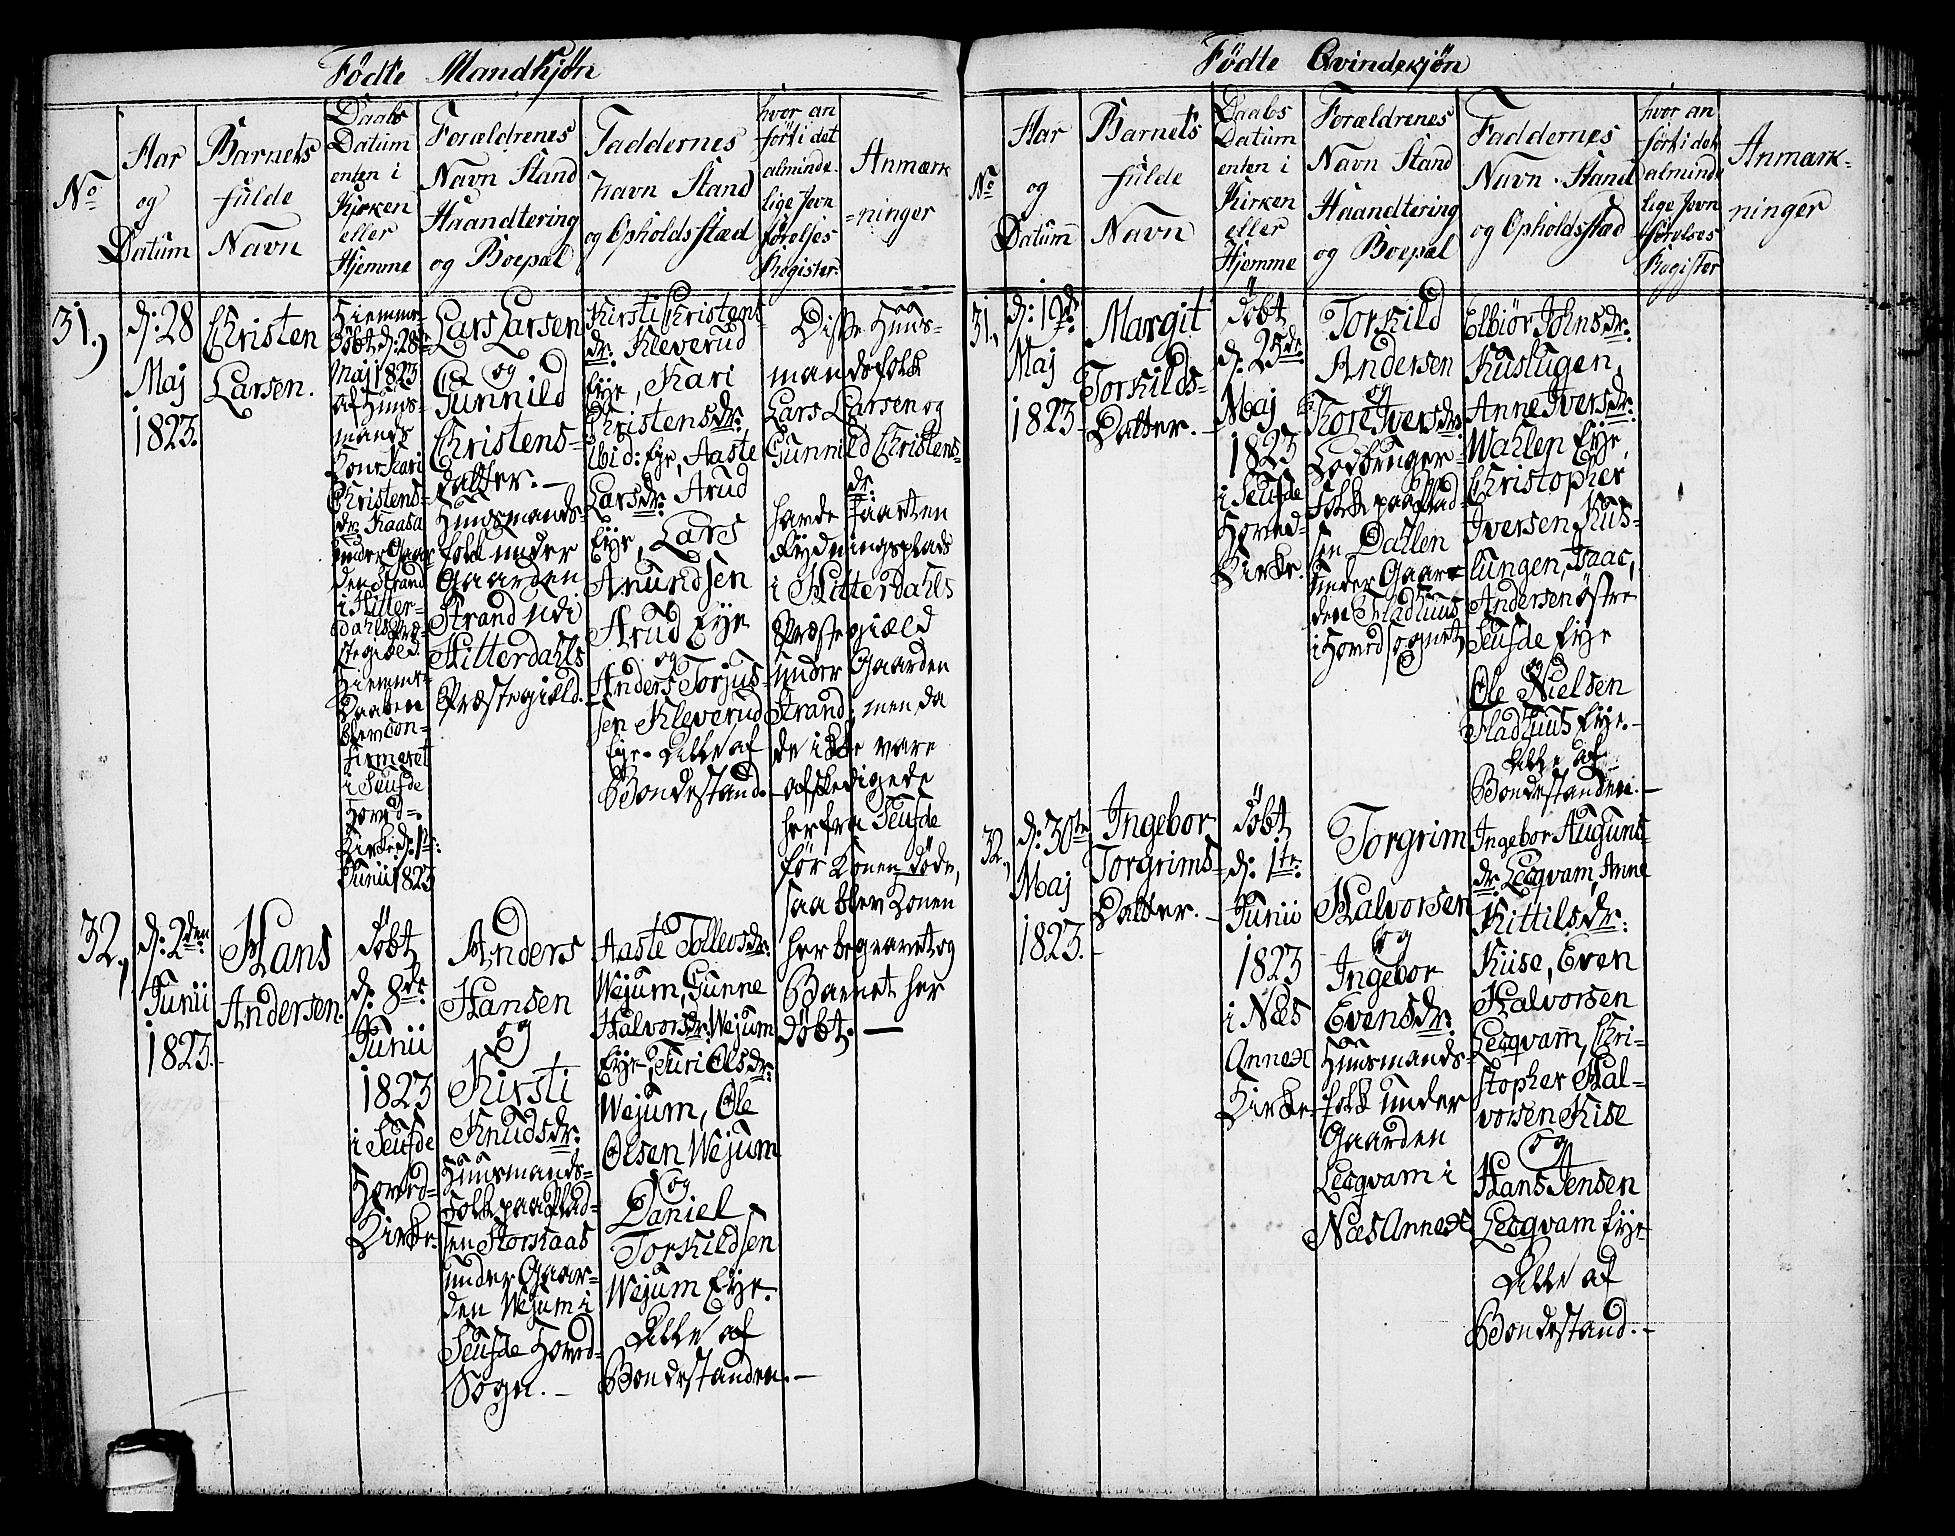 Födte Mandkjön
No
Aar
og
Datum
Barnets
fulde
Navn
Daabs
Datum
enten i
Kirken
eller
Hjemme
Forældrenes
Navn Stand
Haandtering
og Boepæl
Faddernes
Navn Stand
og Opholdsstæd
hvor an
fört i det
alminde
lige Jevn
förelses
Register
Anmærk
=ninger
31.)
d: 28
Maj
1823.
Christen
Larsen.
Hiemme-
döbt d: 28de
Maj 1823
af Huus-
mands
Kone Kari
Christens-
dr. Kaasa
under Gaar
den Strand
i Hitter-
dahls Præ-
stegield.
Hiemme-
Daaben
blev con-
firmeret
i Seufde
Hoved-
Kirke d: 1te:
Junii 1823
Lars Larsen
og
Gunnild
Christens-
datter. -
Huusmands-
folk under
Gaarden
Strand udi
Hitterdahls
Præstegield.
Kirsti Christens-
dr. Kleverud
Eye, Kari
Christensdr.
ibid: Eye, Aaste
Larsdr. Arud
Eye, Lars
Anundsen
Arud Eye
og
Anders Torjus-
sen Kleverud
Eye - Alle af
Bondestand. -
Disse Huus-
mandsfolk
Lars Larsen og
Gunnild Christens-
dr.
havde faaet en
Rydningsplads
i Hitterdahls
Præstegiæld
under Gaarden
Strand, men da
de ikke vare
afskedigede
her fra Seufde
för Konen döde,
saa blev Konen
her begravet og
Barnet her
döbt. -
32.)
d: 2den:
Junii
1823.-
Hans
Andersen.
döbt
d: 8de:
Junii
1823
i Seufde
Hoved-
Kirke.
Anders
Hansen
og
Kirsti
Knudsdr:
Huusmands-
Folk paa Plad-
sen Storkaas
under Gaar-
den Wejum i
Seufde Hoved-
Sogn. -
Aaste Tollevsdr:
Wejum, Gunne
Halvorsdr. Wejum
Eye, Turi Olsdr:
Wejum, Ole
Olsen Wejum
og
Daniel
Torkildsen
Wejum Eye.
Alle af
Bondestanden. -
Födte Qvindekjön
No
Aar
og
Datum
Barnets
fulde
Navn
Daabs
Datum
enten i
Kirken
eller
Hjemme
Forældrenes
Navn Stand
Haandtering
og Boepæl
Faddernes
Navn Stand
og Opholdsstad
hvor an
fört i det
alminde
lige Jevn
förelses
Register
Anmærk-
ninger
31.)
d: 19de
Maj
1823-
Margit
Torkilds-
Datter. -
döbt
d: 25de:
Maj
1823
i Seufde
Hoved-
Kirke.
Torkild
Andersen
og
Tore Iversdr:
Losbenger-
folk paa Plad-
sen Dahlen
under Gaar-
den Fladhuus
i Hovedsognet
Elbiör Johnsdr:
Kuslugen,
Anne Iversdr:
Wahlen Eye,
Christopher
Iversen Kus-
lungen, Isaac,
Andersen östre
Seufde Eye
og
Ole Nielsen
Fladhuus Eye. -
Alle af
Bondestanden. -
32.)
d: 30te
Maj
1823. -
Ingebor
Torgrims-
Datter. -
döbt
d: 1te:
Junii
1823
i Næs
Annex
Kirke-
Torgrim
Halvorsen
og
Ingebor
Evensdr:
Huusmands-
folk under
Gaarden
Lecqvam i
Næs Annex
Ingebor Auguns-
dr: Lecqvam, Anne
Kittilsdr:
Kiise, Even
Halvorsen
Lecqvam, Chri-
stopher Hal-
vorsen Kise
og
Hans Jensen
Lecqvam Eye
Alle af
Bondestand. -